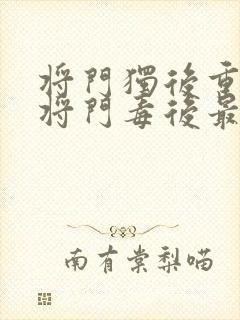 將門獨後重
將門毒後最
南有棠梨喵